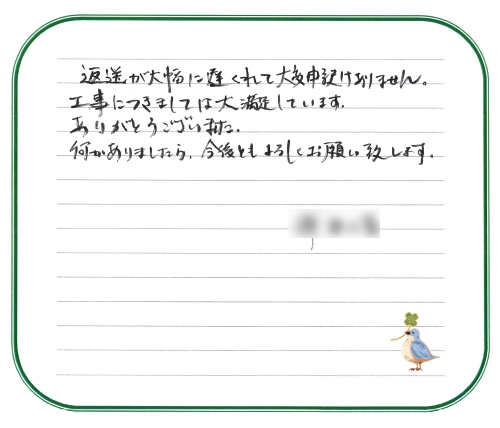 返送が大幅に遅くれて大変申訳けありません。
工事につきましては大満足しています.
ありがとうございました.
何かありましたら、今後ともよろしくお願い致します.